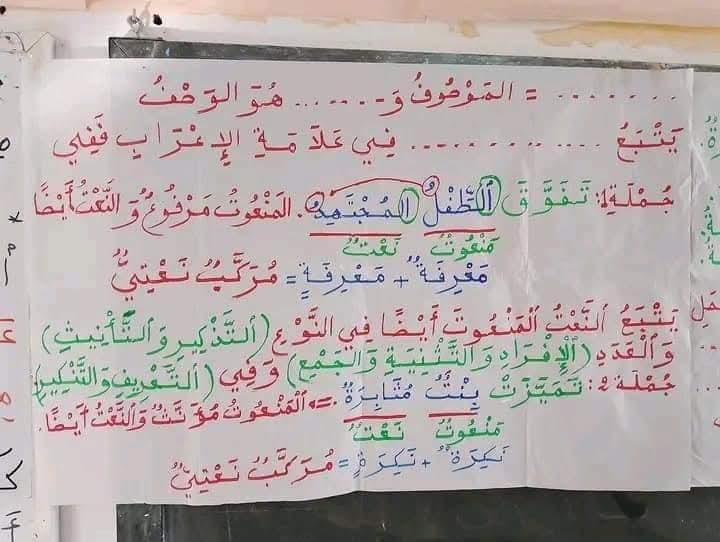 ........ = المَوْصُوفُ وَ....... هُوَ الوَصْفُ
يَتْبَعُ ............ فِي عَلَامَةِ الإِعْرَابِ فَفِي
جُمْلَة1: تَفَوَّقَ الطِّفْلُ المُجْتَهِدُ. المَنْعُوتُ مَرْفُوعٌ وَالنَّعْتُ أَيْضًا
مَنْعُوتٌ نَعْتٌ
مَعْرِفَةٌ + مَعْرِفَةٍ = مُرَكَّبٌ نَعْتِيٌّ
يَتْبَعُ النَّعْتُ المَنْعُوتَ أَيْضًا فِي النَّوْعِ (التَّذْكِيرِ وَالتَّأْنِيثِ)
وَالعَدَدِ (الإِفْرَادِ وَالتَّثْنِيَةِ وَالجَمْعِ) وَفِي (التَّعْرِيفِ وَالتَّنْكِيرِ)
جُمْلَة2: تَمَيَّزَتْ بِنْتٌ مُثَابِرَةٌ. => المَنْعُوتُ مُؤَنَّثٌ وَالنَّعْتُ أَيْضًا.
مَنْعُوتٌ نَعْتٌ
نَكِرَةٌ + نَكِرَةٍ = مُرَكَّبٌ نَعْتِيٌّ